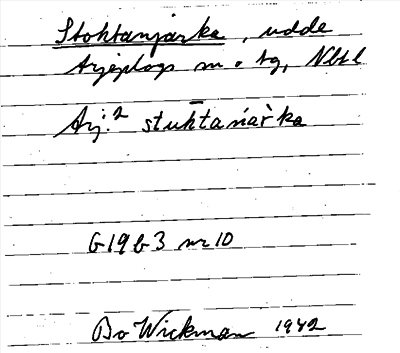 Stohtanjarka, udde
Arjeplogs sn o tg, Nbtl
Arj.² stuhtańàr̀ka
G 19 b 3 nr 10
Bo Wickman 1942